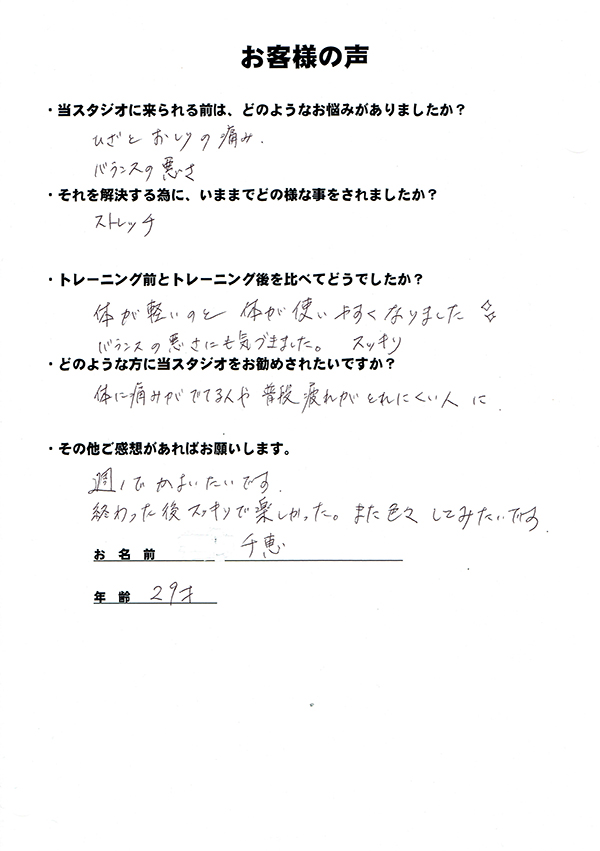 お客様の声
・当スタジオに来られる前は、どのようなお悩みがありましたか？
ひざと おしりの痛み.
バランスの悪さ
・それを解決する為に、いままでどの様な事をされましたか？
ストレッチ
・トレーニング前とトレーニング後を比べてどうでしたか？
体が軽いのと 体が使いやすくなりました
バランスの悪さにも気づきました。 スッキリ
・どのような方に当スタジオをお勧めされたいですか？
体に痛みがでてる人や 普段疲れがとれにくい人 に
・その他ご感想があればお願いします。
週1でかよいたいです.
終わった後スッキリで楽しかった。また色々 してみたいです
お 名 前 千恵
年 齢 29才